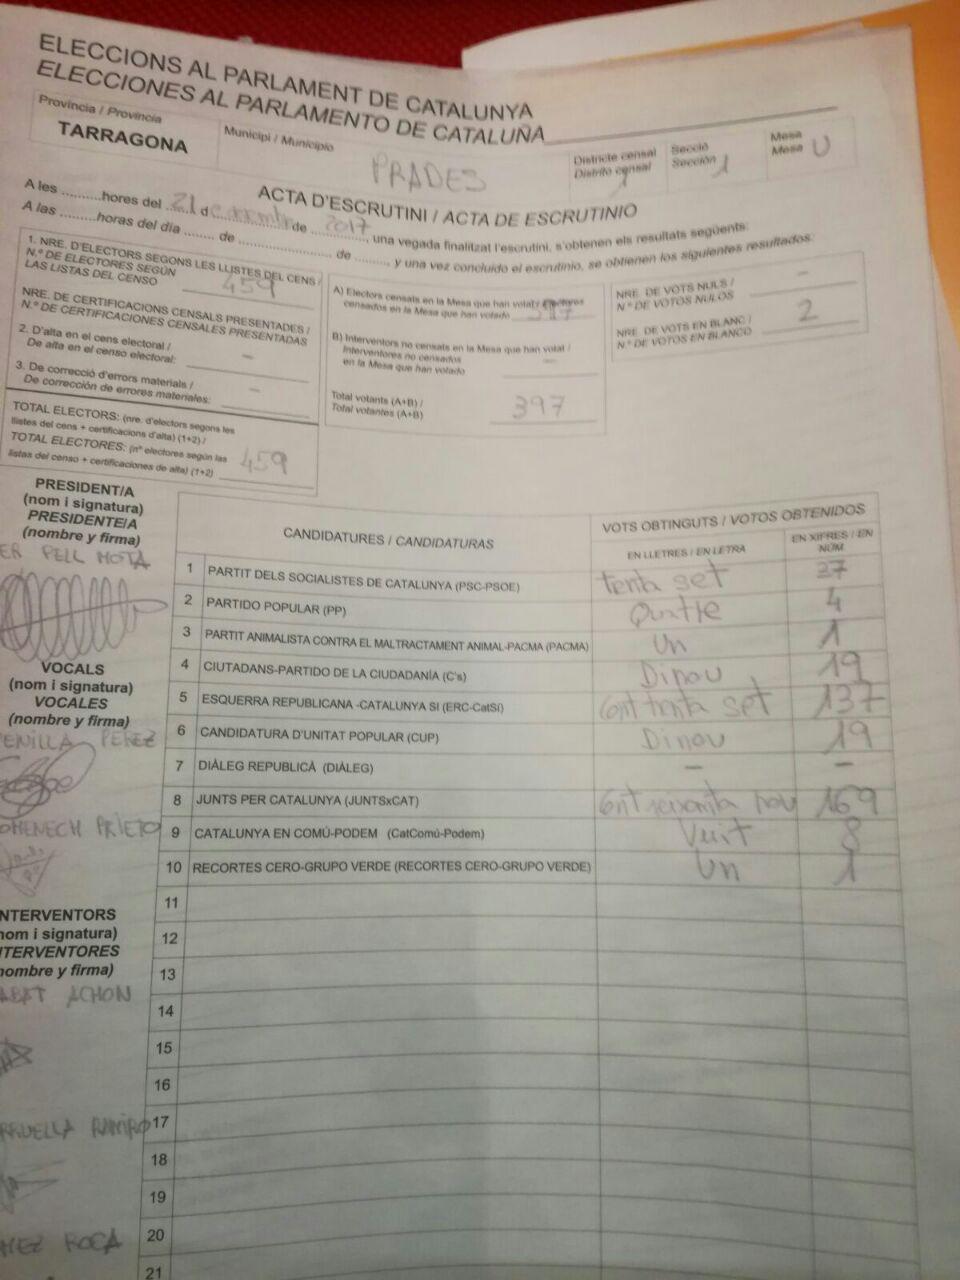 ELECCIONS AL PARLAMENT DE CATALUNYA
ELECCIONES AL PARLAMENTO DE CATALUÑA
Província / Provincia
TARRAGONA
Municipi / Municipio
PRADES
Districte censal
Distrito censal
1
Secció
Sección
1
Mesa
Mesa U
ACTA D'ESCRUTINI / ACTA DE ESCRUTINIO
A les ..........hores del 21 d de 2017, una vegada finalitzat l'escrutini, s'obtenen els resultats següents:
A las .........horas del día ........ de ........................ de ......... y una vez concluido el escrutinio, se obtienen los siguientes resultados:
1. NRE. D'ELECTORS SEGONS LES LLISTES DEL CENS /
N.º DE ELECTORES SEGÚN
LAS LISTAS DEL CENSO
459
NRE. DE CERTIFICACIONS CENSALS PRESENTADES /
N.º DE CERTIFICACIONES CENSALES PRESENTADAS
2. D'alta en el cens electoral /
De alta en el censo electoral: –
3. De correcció d'errors materials /
De corrección de errores materiales: –
TOTAL ELECTORS: (nre. d'electors segons les
llistes del cens + certificacions d'alta) (1+2) /
TOTAL ELECTORES: (nº electores según las
listas del censo + certificaciones de alta) (1+2)
459
A) Electors censats en la Mesa que han votat / Electores
censados en la Mesa que han votado 397
B) Interventors no censats en la Mesa que han votat /
Interventores no censados
en la Mesa que han votado –
Total votants (A+B) /
Total votantes (A+B)
397
NRE. DE VOTS NULS /
N.º DE VOTOS NULOS –
NRE. DE VOTS EN BLANC /
N.º DE VOTOS EN BLANCO 2
PRESIDENT/A
(nom i signatura)
PRESIDENTE/A
(nombre y firma)
ER PELL MOTA
VOCALS
(nom i signatura)
VOCALES
(nombre y firma)
ENILLA PEREZ
OMENECH PRIETO
NTERVENTORS
nom i signatura)
NTERVENTORES
nombre y firma)
ABAT ACHON
RRUELLA RAMIRO
MEZ ROCA
CANDIDATURES / CANDIDATURAS
VOTS OBTINGUTS / VOTOS OBTENIDOS
EN LLETRES / EN LETRA
EN XIFRES / EN NÚM
1 PARTIT DELS SOCIALISTES DE CATALUNYA (PSC-PSOE) tenta set 37
2 PARTIDO POPULAR (PP) Quatre 4
3 PARTIT ANIMALISTA CONTRA EL MALTRACTAMENT ANIMAL-PACMA (PACMA) Un 1
4 CIUTADANS-PARTIDO DE LA CIUDADANÍA (C's) Dinou 19
5 ESQUERRA REPUBLICANA -CATALUNYA SI (ERC-CatSí) Cent tenta set 137
6 CANDIDATURA D'UNITAT POPULAR (CUP) Dinou 19
7 DIÀLEG REPUBLICÀ (DIÀLEG) – –
8 JUNTS PER CATALUNYA (JUNTSxCAT) Cent seixanta nou 169
9 CATALUNYA EN COMÚ-PODEM (CatComú-Podem) Vuit 8
10 RECORTES CERO-GRUPO VERDE (RECORTES CERO-GRUPO VERDE) Un 1
11
12
13
14
15
16
17
18
19
20
21